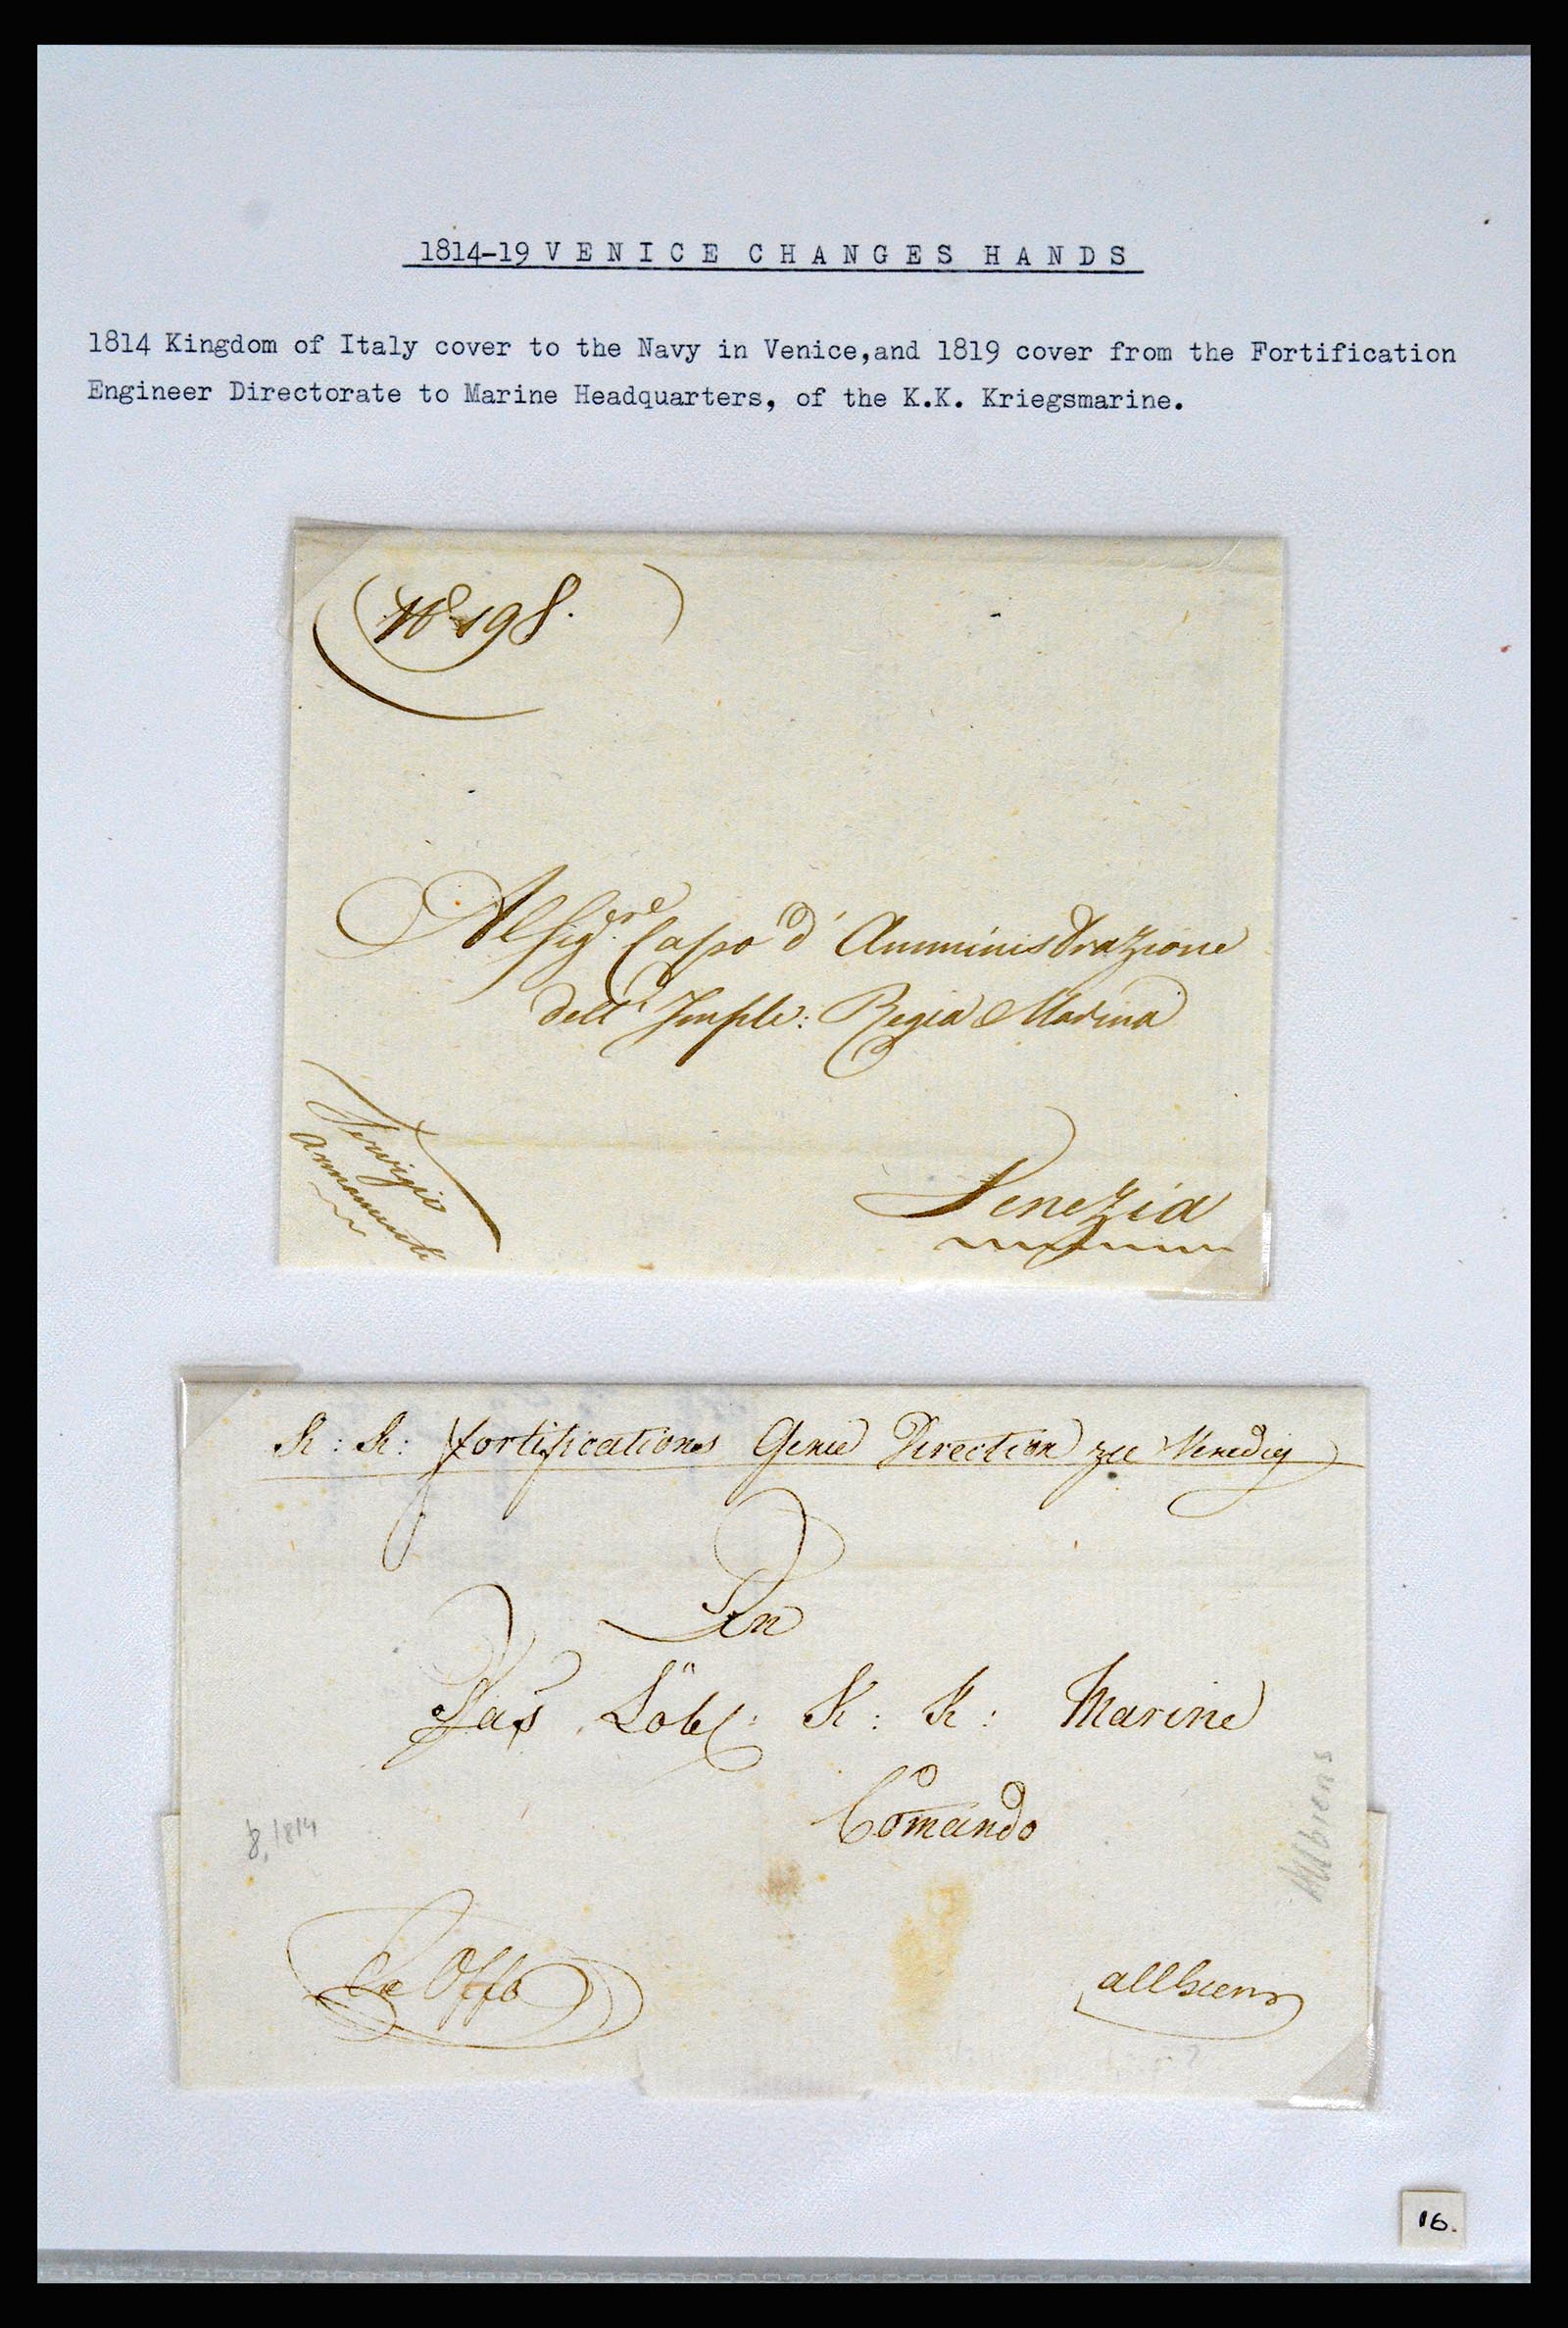 1814-19 VENICE CHANGES HANDS
1814 Kingdom of Italy cover to the Navy in Venice,and 1819 cover from the Fortification
Engineer Directorate to Marine Headquarters, of the K.K. Kriegsmarine.
(No 198.)
Al Sigre Capo d' Amministrazione
dell' Imple: Regia Marina
Servizio
Armamenti
Venezia
K: K: Fortifications Genie Direction zu Venedig
An
Das Löbl: K: K: Marine
Comando
1814
Ex Offo
allhiern
16.